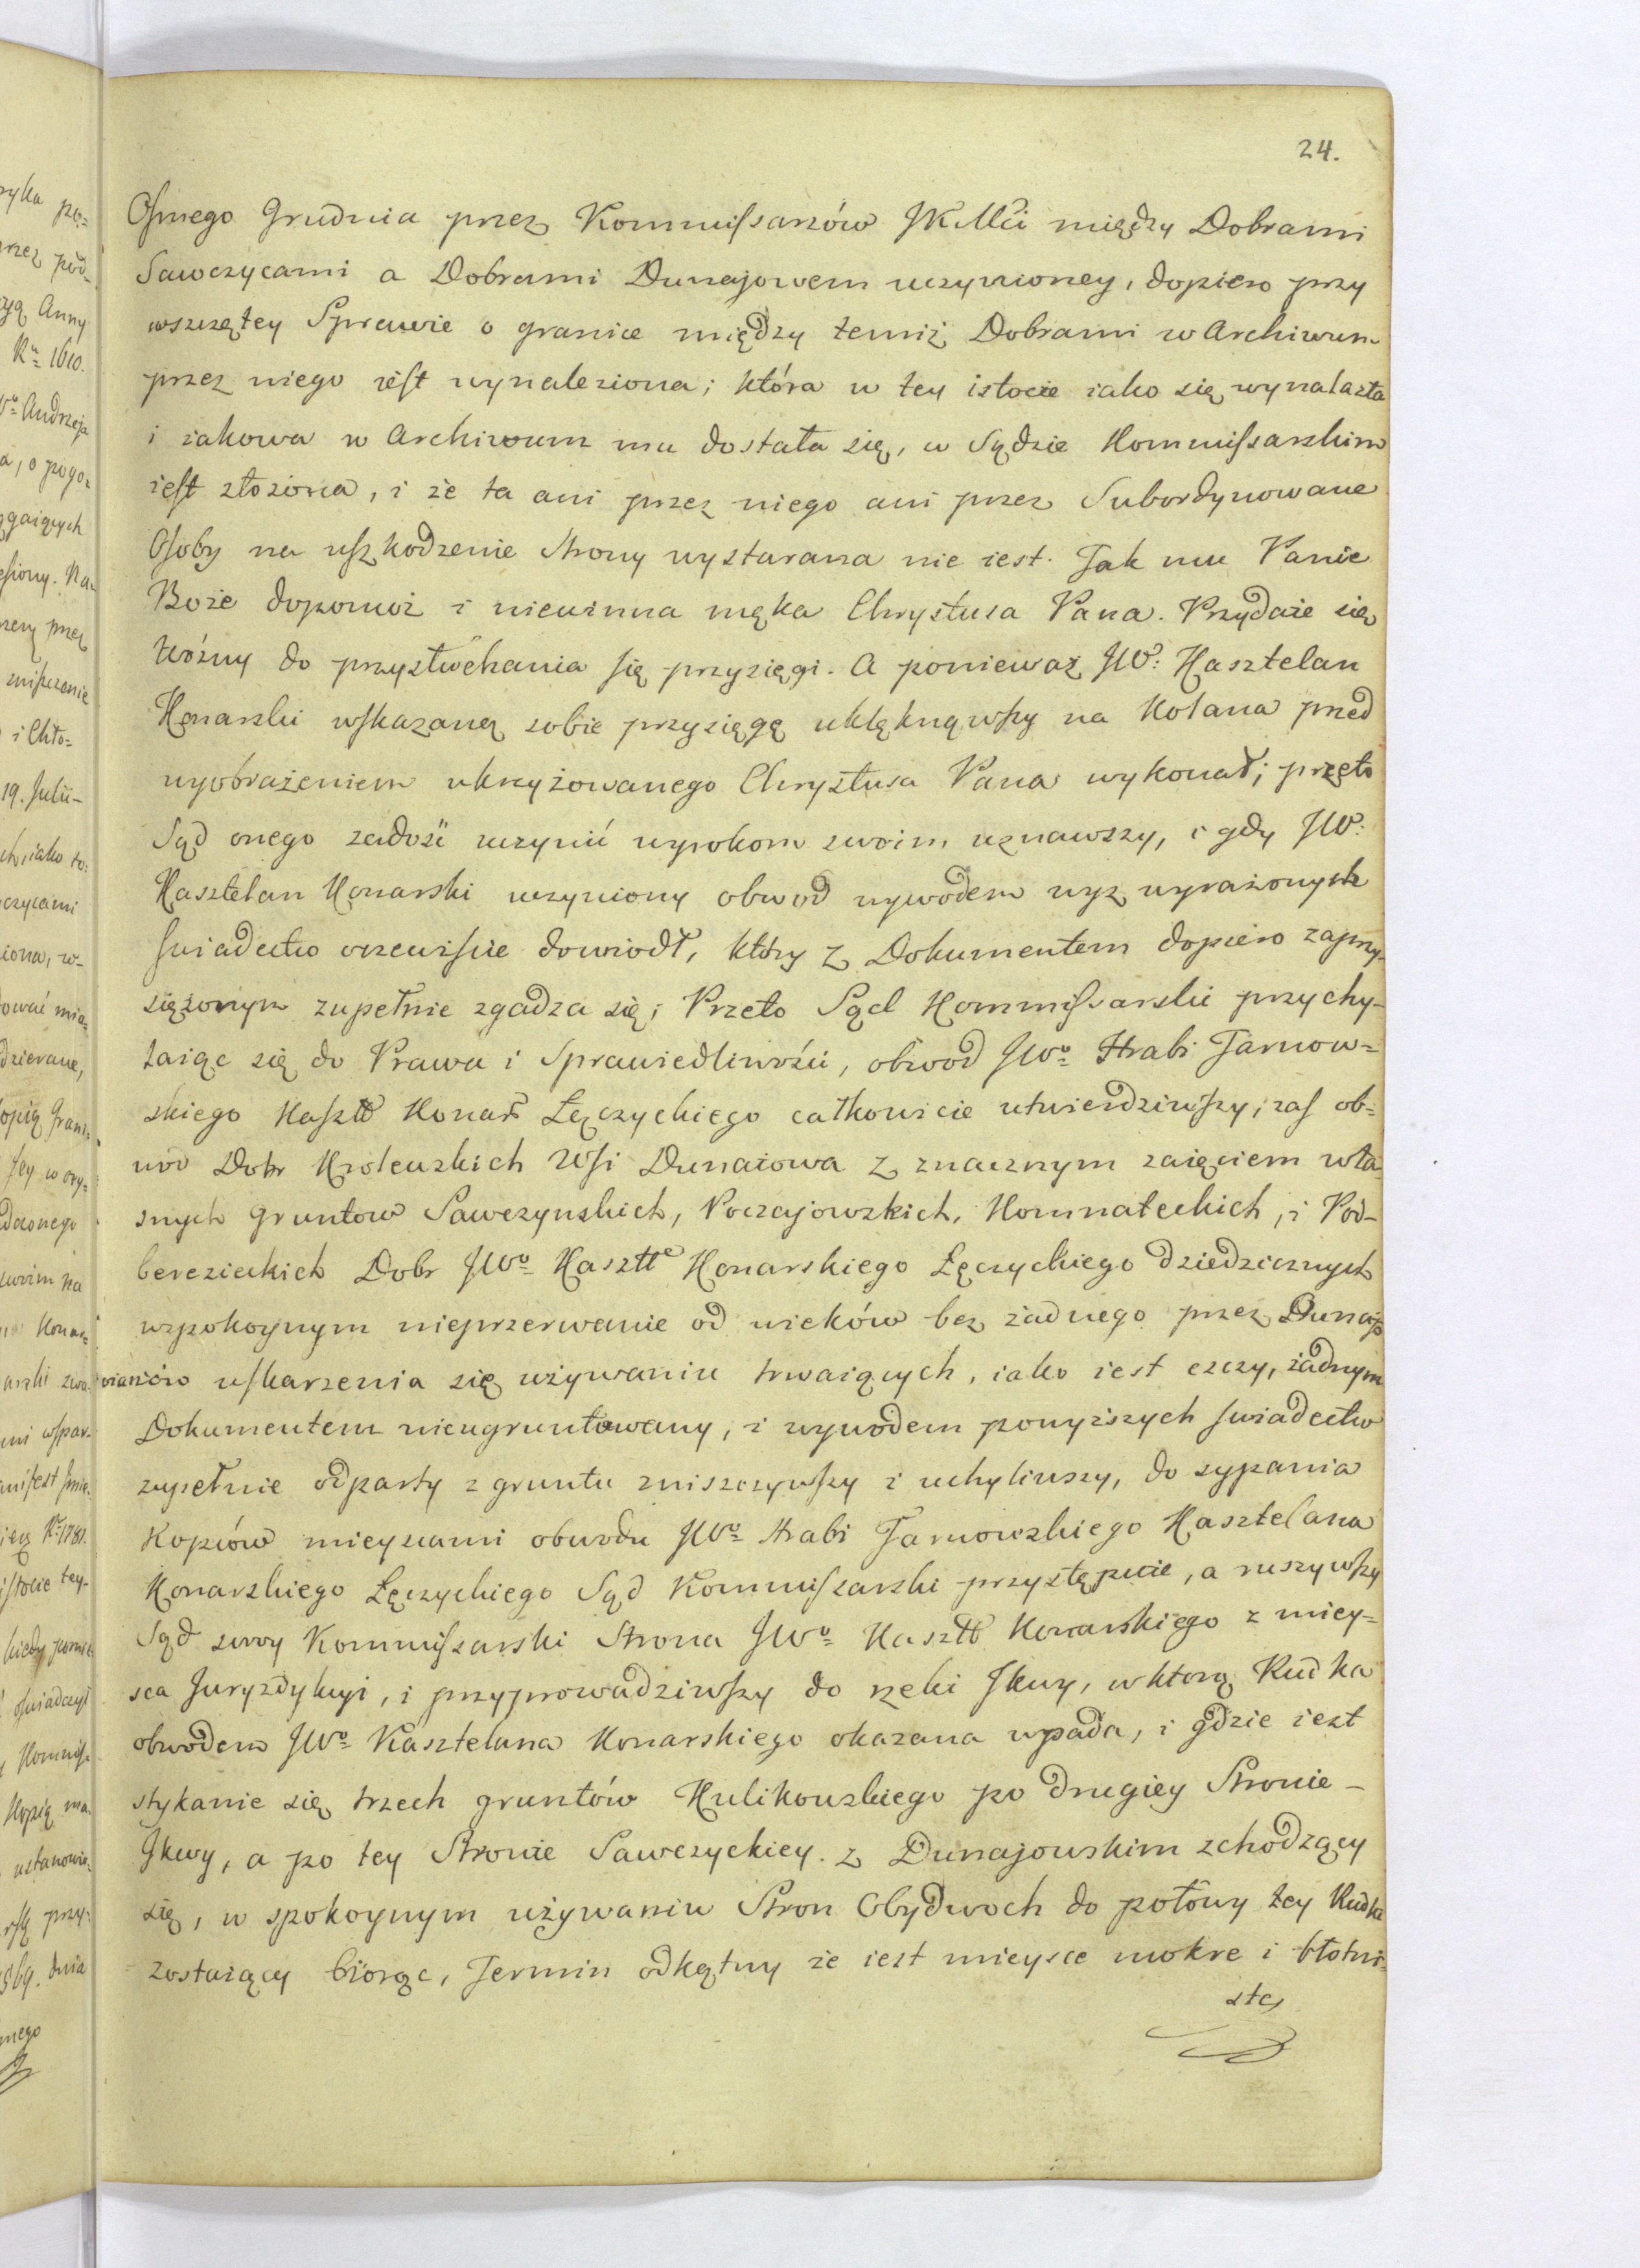 24.
Osmego Grudnia przez Kommissarzów JKMci między Dobrami
Sawczycami a Dobrami Dunajowem uczynioney, dopiero przy
wszczętey Sprawie o granice między temiż Dobrami w Archiwum
przez niego iest wynaleziona; która w tey istocie iako się wynalazła
i iakowa w Archiwum mu dostała się, w Sądzie Kommissarskim
iest złożona, i że ta ani przez niego ani przez Subordynowane
Osoby na uszkodzenie Strony wystarana nie iest. Jak mu Panie
Boże dopomoż i niewinna męka Chrystusa Pana. Przydaie się
Woźny do przysłuchania się przysięgi. A ponieważ JWº: Kasztelan
Konarski wskazaną sobie przysięgę uklęknąwszy na Kolana przed
wyobrażeniem ukrzyżowanego Chrystusa Pana wykonał; przeto
Sąd onego zadość uczynić wyrokom swoim uznawszy, i gdy JW:
Kasztelan Konarski uczyniony obwod wywodem wyz wyrażonych
swiadectw oczewiście dowiodł, który z Dokumentem dopiero zaprzy-
siężonym zupełnie zgadza się; Przeto Sąd Kommissarski przychy-
laiąc się do Prawa i Sprawiedliwości, obwod JWº= Hrabi Tarnow=
skiego Kasztº Konarº Łęczyckiego całkowicie utwierdziwszy; zaś ob=
wod Dobr Krolewskich Wsi Dunaiowa z znacznym zaięciem wła-
snych gruntow Sawczynskich, Poczajowskich, Komnateckich, i Pod-
berezieckich Dobr JWº= Kasztle Konarskiego Łęczyckiego dziedzicznych
wspokoynym nieprzerwanie od wieków bez żadnego przez Dunajo
wianów uskarzenia się używaniu trwaiących, iako iest czczy, żadnym
Dokumentem nieugruntowany, i wywodem ponyższych swiadectw
zupełnie odparty z gruntu zniszczywszy i uchyliwszy, do sypania
Kopców mieyscami obwodu JWº= Hrabi Tarnowskiego Kasztelana
Konarskiego Łęczyckiego Sąd Kommissarski przystępuie, a ruszywszy
Sąd swoy Kommissarski Strona JWº= Kasztº Konarskiego z miey=
sca Juryzdykcyi, i przyprowadziwszy do rzeki Jkwy, w ktorą Rudka
obwodem JWº= Kasztelana Konarskiego okazana wpada, i gdzie iest
stykanie się trzech gruntów Kulikowskiego po drugiey Stronie -
Jkwy, a po tey Stronie Sawczyckiey z Dunajowskim zchodzący
się, w spokoynym używaniu Stron Obydwoch do połowy tey Rudki
zostaiący biorąc, Termin odkątny że iest mieysce mokre i błotni=
ste,